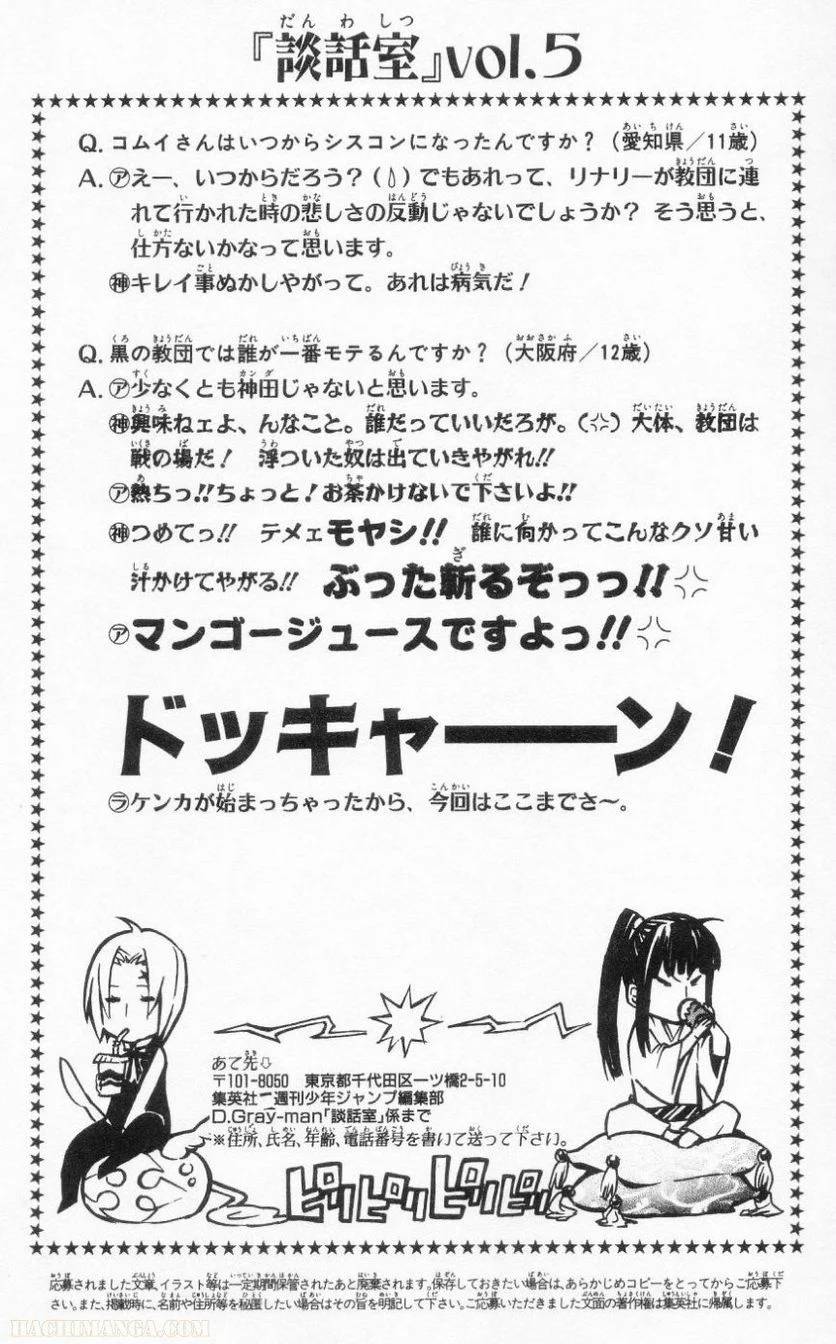 『談話室』vol.5
Q. コムイさんはいつからシスコンになったんですか？（愛知県／11歳）
A. ㋐えー、いつからだろう？（）でもあれって、リナリーが教団に連
れて行かれた時の悲しさの反動じゃないでしょうか？ そう思うと、
仕方ないかなって思います。
㊙キレイ事ぬかしやがって。あれは病気だ！
Q. 黒の教団では誰が一番モテるんですか？（大阪府／12歳）
A. ㋐少なくとも神田じゃないと思います。
神興味ねェよ、んなこと。誰だっていいだろが。（）大体、教団は
戦の場だ！ 浮ついた奴は出ていきやがれ!!
㋐熱ちっ!!ちょっと！お茶かけないで下さいよ!!
神つめてっ!! テメェモヤシ!! 誰に向かってこんなクソ甘い
汁かけてやがる!! ぶった斬るぞっっ!!
㋐マンゴージュースですよっ!!
ドッキャーーン！
㋶ケンカが始まっちゃったから、今回はここまでさ〜。
あて先⇩
〒101-8050 東京都千代田区一ツ橋2-5-10
集英社 週刊少年ジャンプ編集部
D.Gray-man「談話室」係まで
※住所、氏名、年齢、電話番号を書いて送って下さい。
ピリピリピリピリ
応募されました文章、イラスト等は一定期間保管されたあと廃棄されます。保存しておきたい場合は、あらかじめコピーをとってからご応募下
さい。また、掲載時に、名前や住所等を秘匿したい場合はその旨を明記して下さい。ご応募いただきました文面の著作権は集英社に帰属します。
HACHIMANGA.COM